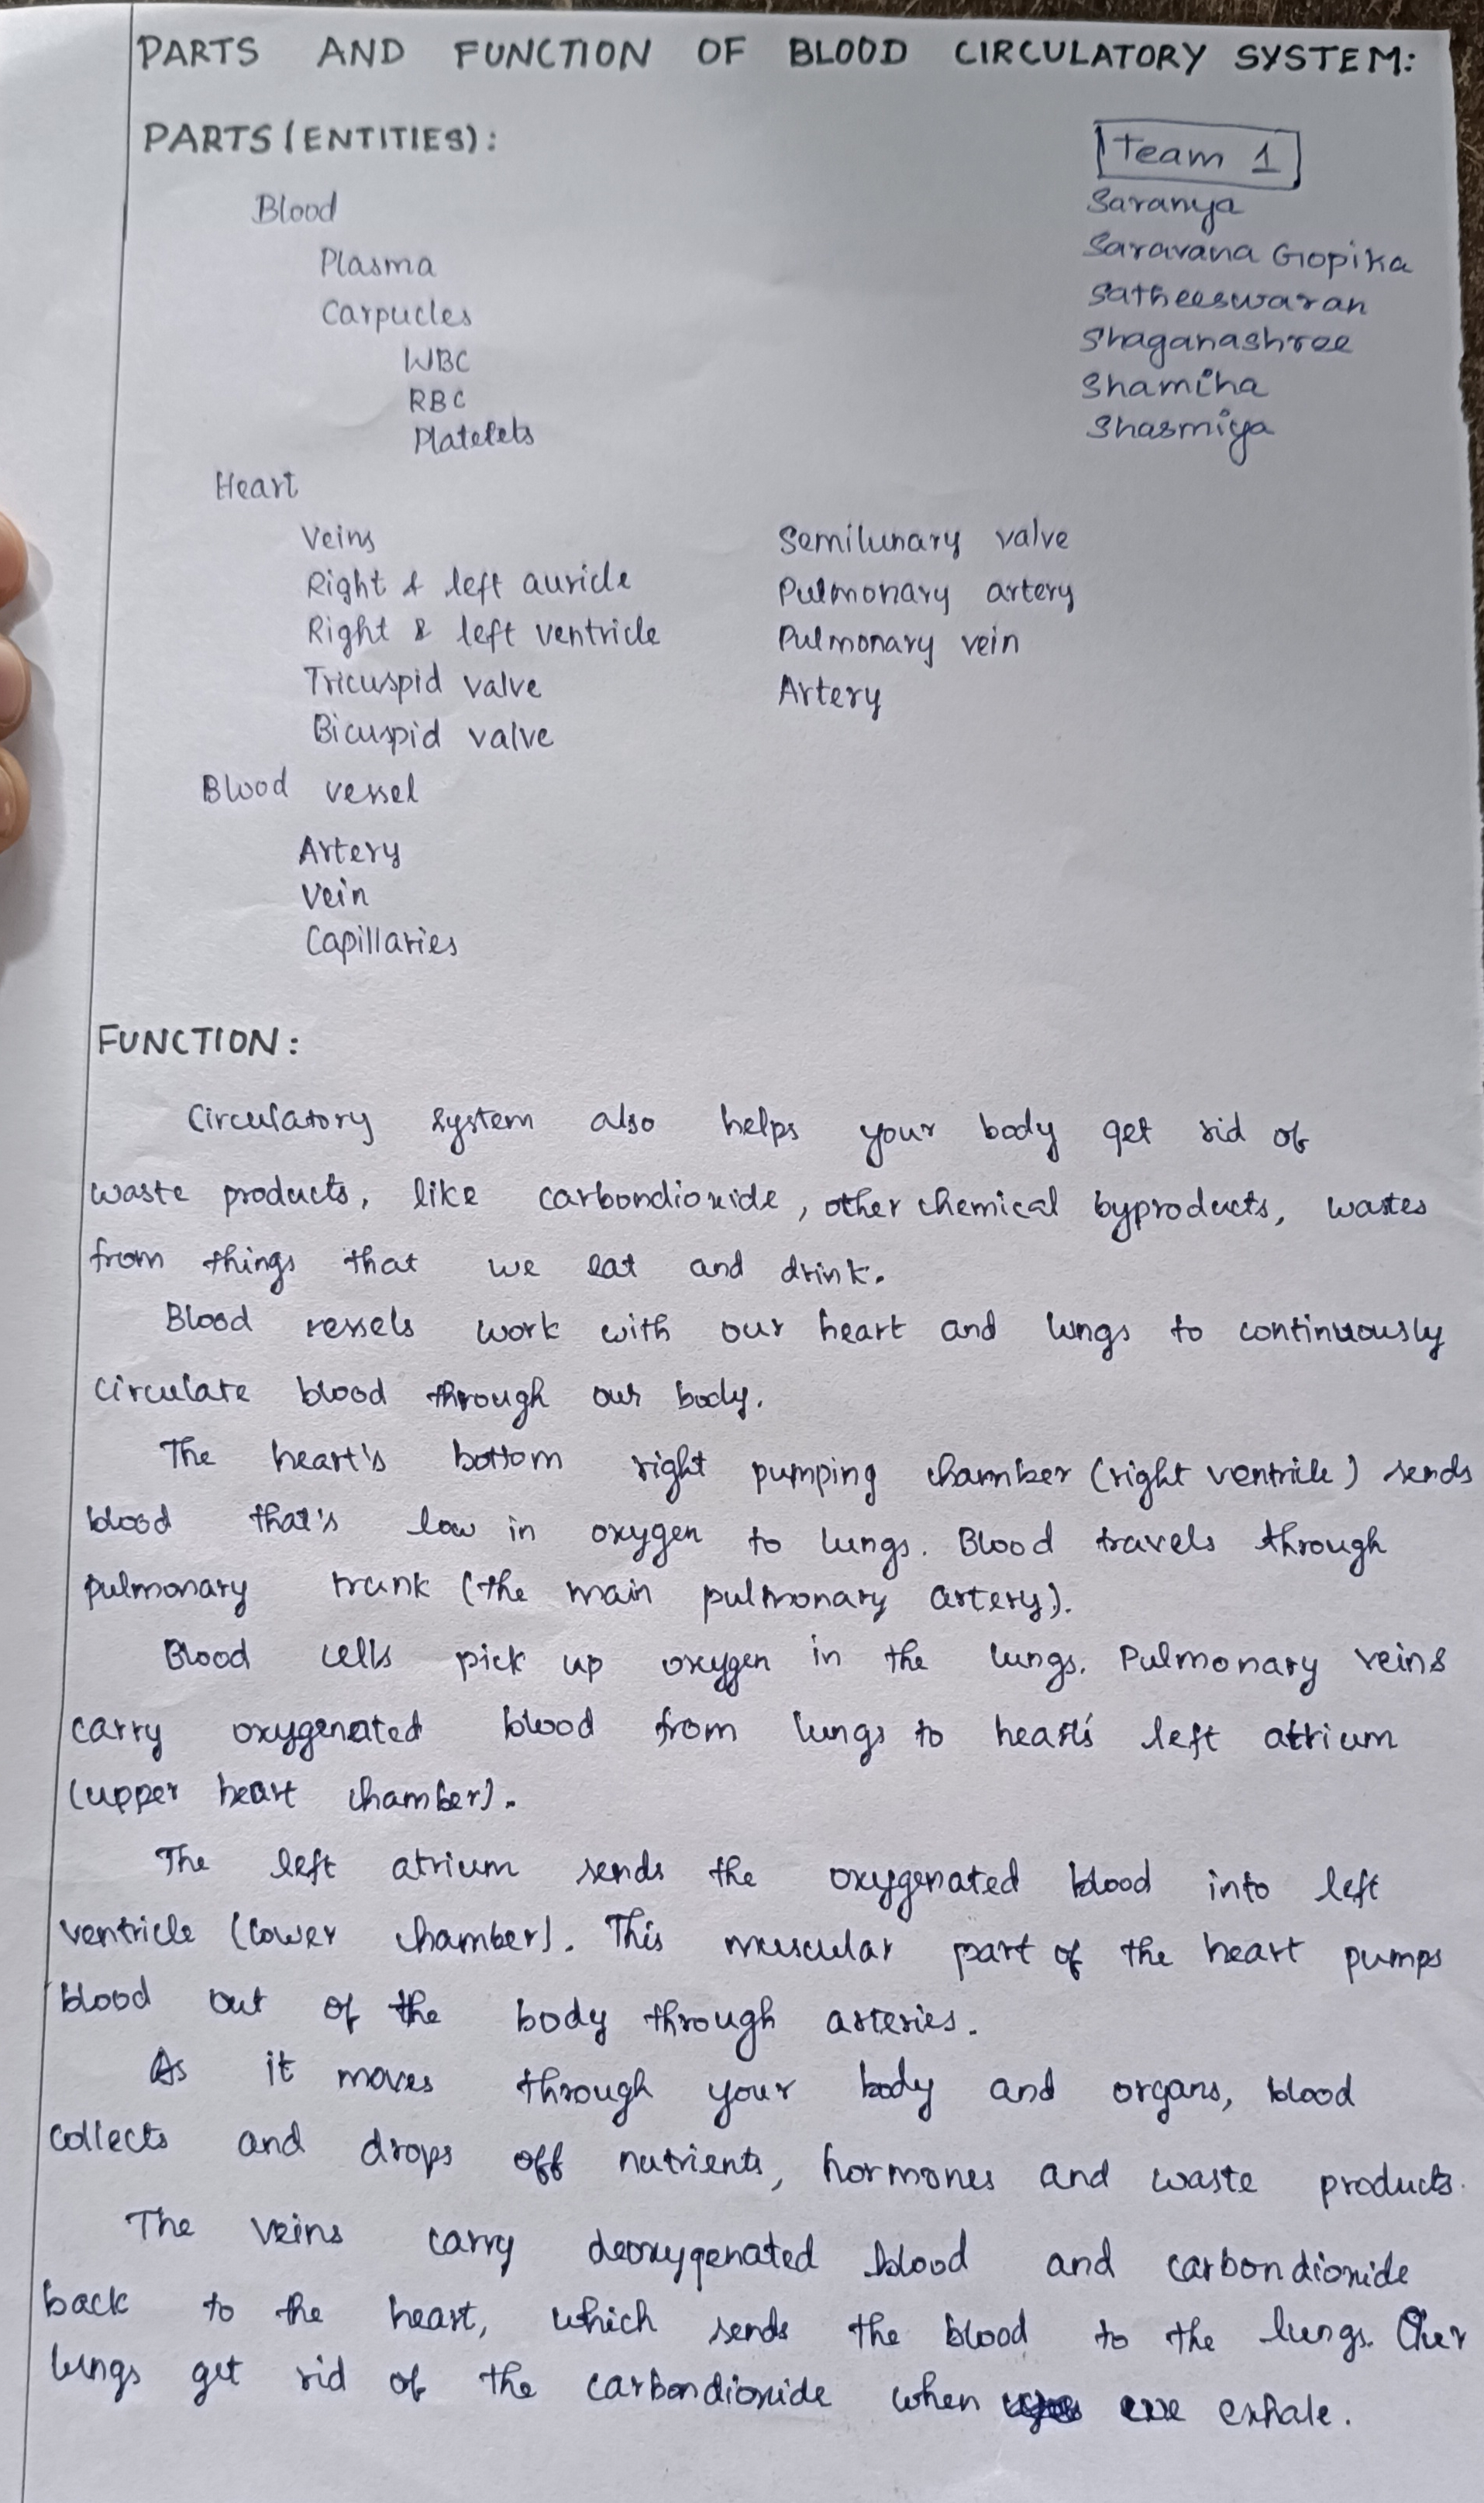 PARTS AND FUNCTION OF BLOOD CIRCULATORY SYSTEM:
PARTS (ENTITIES):
Team 1
Saranya
Saravana Gopika
Satheeswaran
Shaganashree
Shamiha
Shasmiya
Blood
Plasma
Carpucles
WBC
RBC
Platelets
Heart
Veins
Right & left auricle
Right & left ventricle
Tricuspid valve
Bicuspid valve
Semilunary valve
Pulmonary artery
Pulmonary vein
Artery
Blood vessel
Artery
Vein
Capillaries
FUNCTION:
Circulatory system also helps your body get rid of
waste products, like carbondioxide, other chemical byproducts, wastes
from things that we eat and drink.
Blood vessels work with our heart and lungs to continuously
circulate blood through our body.
The heart's bottom right pumping chamber (right ventricle) sends
blood that's low in oxygen to lungs. Blood travels through
pulmonary trunk (the main pulmonary artery).
Blood cells pick up oxygen in the lungs. Pulmonary veins
carry oxygenated blood from lungs to heart's left atrium
(upper heart chamber).
The left atrium sends the oxygenated blood into left
ventricle (lower chamber). This muscular part of the heart pumps
blood out of the body through arteries.
As it moves through your body and organs, blood
collects and drops off nutrients, hormones and waste products.
The veins carry deoxygenated blood and carbondioxide
back to the heart, which sends the blood to the lungs. Our
lungs get rid of the carbondioxide when we exhale.